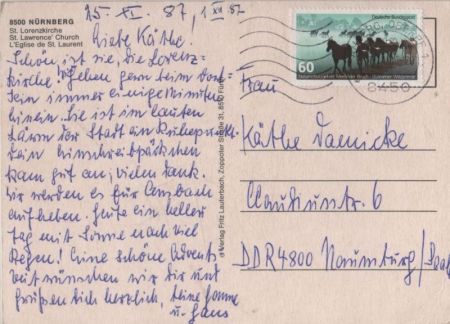 15. XI. 87, 1 XII 87
8500 NÜRNBERG
St. Lorenzkirche
St. Lawrence' Church
L'Eglise de St. Laurent
Liebe Käthe.
Schön ist sie, die Lorenz-
kirche. Wir gehen gern beim Dort-
sein immer einige Minuten
hinein. Sie ist im lauten
Lärm der Stadt ein Ruhepunkt.
Dein Einschreibpäckchen
kam gut an, vielen Dank.
Wir werden es für Ansbach
aufheben. Heute ein heller
Tag mit Sonne nach viel
Regen! Eine schöne Advents-
zeit wünschen wir Dir und
grüßen Dich herzlich, Deine
u. Hans
Verlag Fritz Lauterbach, Zoppoter Straße 31, 8510 Fürth
Deutsche Bundespost
60
8450
Frau
Käthe Damicke
Claudiusstr. 6
DDR 4800 Naumburg/Saale